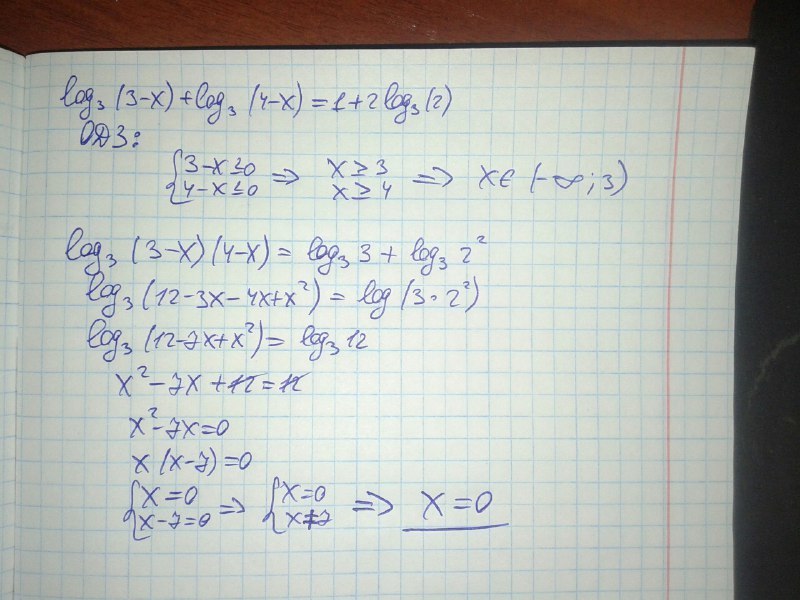 log₃ (3-x) + log₃ (4-x) = 1 + 2 log₃ (2)
ОДЗ:
{3-x ≤ 0 => x ≥ 3 => x ∈ (-∞; 3)
4-x ≤ 0 x ≥ 4
log₃ (3-x)(4-x) = log₃ 3 + log₃ 2²
log₃ (12-3x-4x+x²) = log (3·2²)
log₃ (12-7x+x²) = log₃ 12
x² - 7x + 12 = 12
x² - 7x = 0
x (x-7) = 0
{x = 0 => {x = 0 => x = 0
x-7 = 0 x ≠ 7